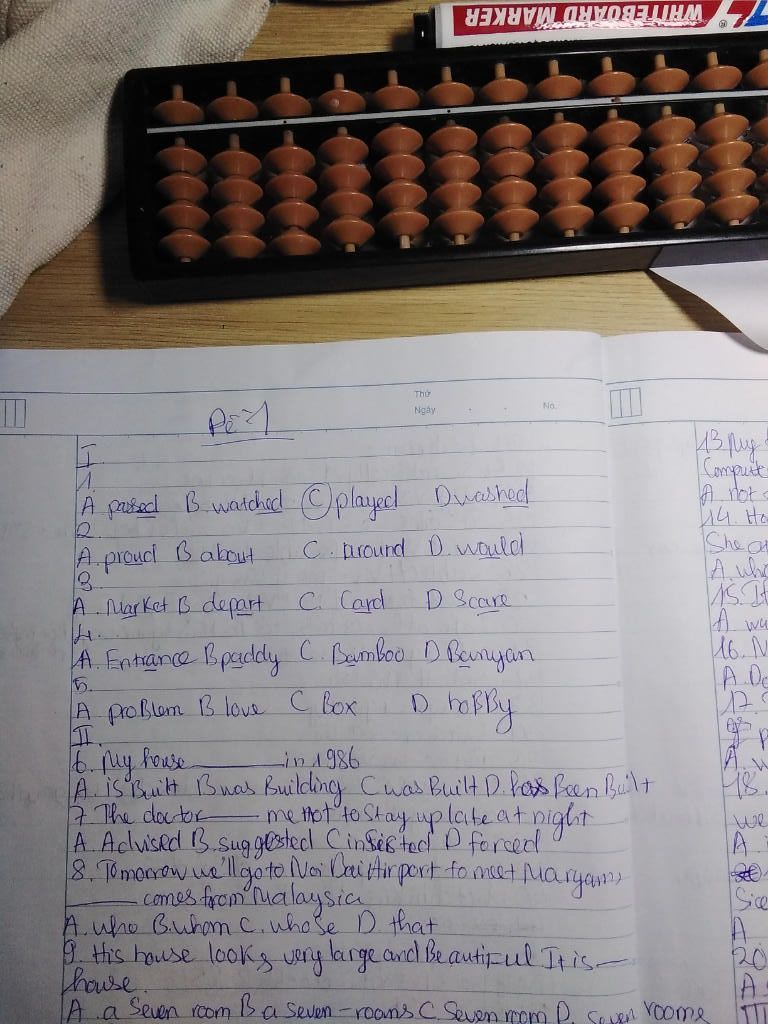 WHITEBOARD MARKER
Thứ
Ngày . . No.
Đề 1
I
1.
A passed B. watched C played D washed
2.
A. proud B about C. around D. would
3
A. Market B depart C. Card D Scare
4.
A. Entrance B paddy C. Bamboo D Banyan
5.
A. problem B love C Box D hoBBy
II
6. My house ____ in 1986
A. is Built B was Building C was Built D. has Been Built
7. The doctor ____ me not to stay up late at night
A. Advised B. suggested C insisted D forced
8. Tomorrow we'll go to Noi Bai Airport to meet Maryam,
____ comes from Malaysia
A. who B. whom C. whose D that
9. His house looks very large and Beautiful It is __
house.
A. a Seven room B a seven-rooms C. Seven room D. seven rooms
13 My
Compute
A. not
14. Ho
She a
A. who
15. It
A wa
16. N
A. Do
17.
A. w
18.
we
A.
Sice
A
20
A
III